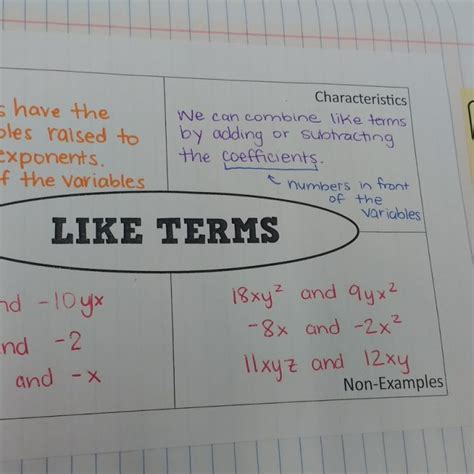 s have the
bles raised to
exponents.
f the variables
Characteristics
We can combine like terms
by adding or subtracting
the coefficients.
numbers in front
of the
variables
LIKE TERMS
nd -10yx
nd -2
and -x
18xy² and 9yx²
-8x and -2x²
11xyz and 12xy
Non-Examples